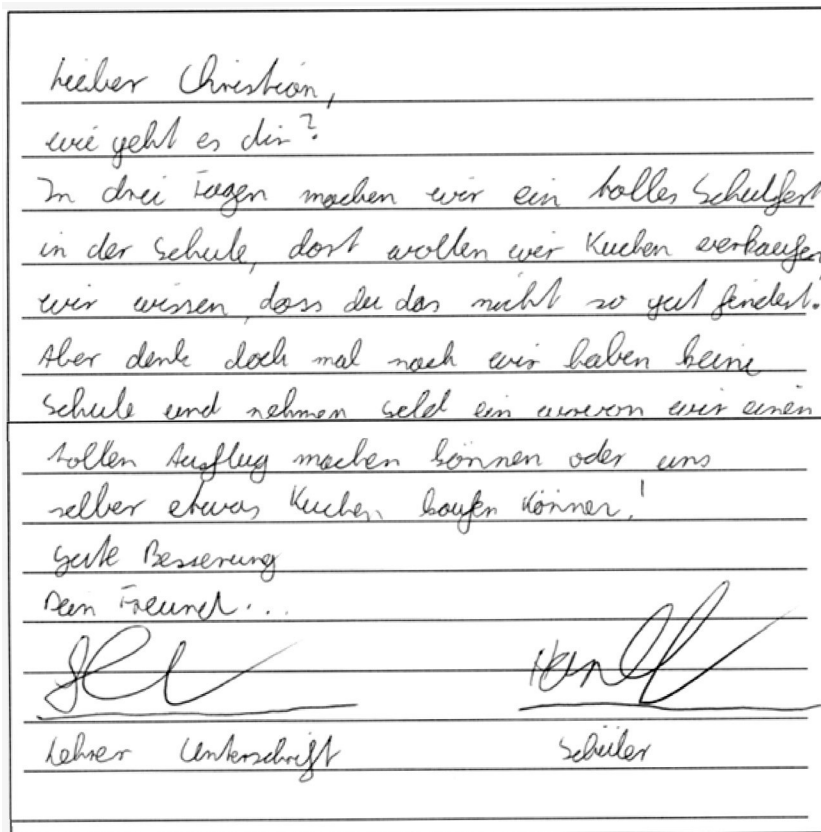 Lieber Christian,
wie geht es dir?
In drei Tagen machen wir ein tolles Schulfest
in der Schule, dort wollen wir Kuchen verkaufen,
wir wissen, dass du das nicht so gut findest.
Aber denk doch mal nach wir haben keine
Schule und nehmen Geld ein wovon wir einen
tollen Ausflug machen können oder uns
selber etwas Kuchen kaufen können!
Gute Besserung
Dein Freund...
Lehrer Unterschrift Schüler